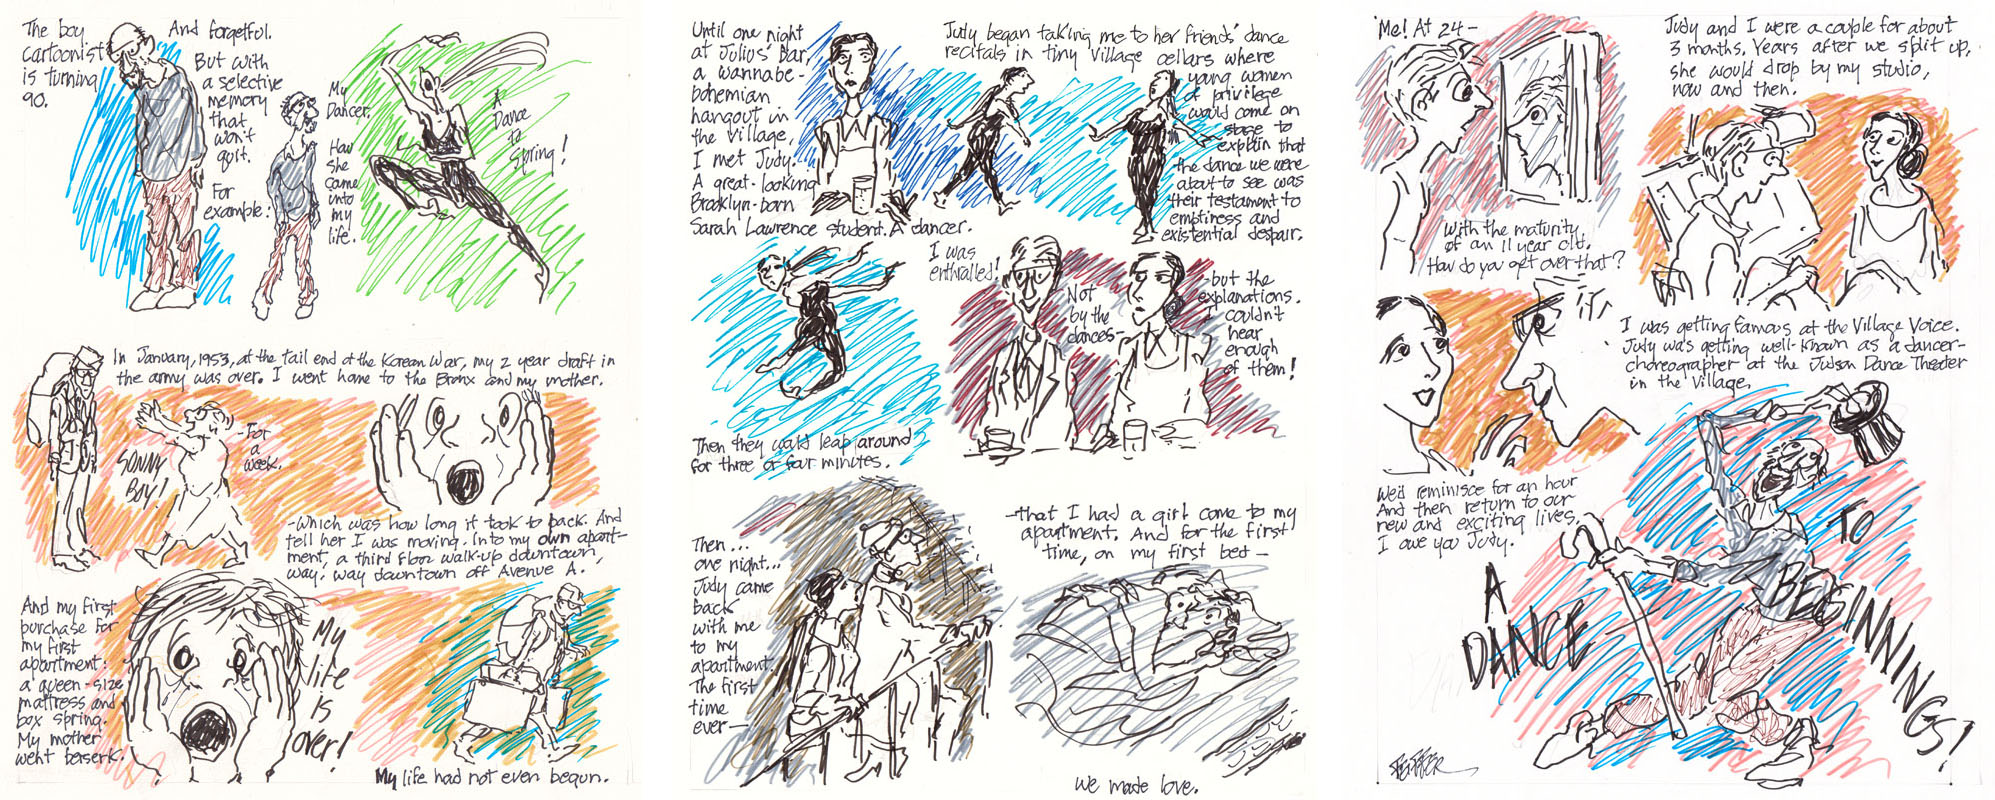 The boy
cartoonist
is turning
90.
And forgetful.
But with
a selective
memory
that
won't
quit.
For
example:
My
Dancer.
How
she
came
into
my
life.
A
Dance
to
Spring!
In January, 1953, at the tail end of the Korean War, my 2 year draft in
the army was over. I went home to the Bronx and my mother.
SONNY
BOY!
-For
a
week.
-Which was how long it took to pack. And
tell her I was moving. Into my own apart-
ment, a third floor walk-up downtown,
way. way downtown off Avenue A.
And my first
purchase for
my first
apartment:
a queen-size
mattress and
box spring.
My mother
went berserk.
My
life
is
over!
My life had not even begun.
Until one night
at Julius' Bar,
a wannabe-
bohemian
hangout in
the Village,
I met Judy.
A great-looking
Brooklyn-born
Sarah Lawrence student. A dancer.
Judy began taking me to her friends' dance
recitals in tiny Village cellars where
young women
of privilege
would come on
stage to
explain that
the dance we were
about to see was
their testament to
emptiness and
existential despair.
Then they would leap around
for three or four minutes.
I was
enthralled!
Not
by the
dances-
-but the
explanations.
I couldn't
hear
enough
of them!
Then...
one night...
Judy came
back
with me
to my
apartment.
The first
time
ever-
-that I had a girl come to my
apartment. And for the first
time, on my first bed-
We made love.
Me! At 24-
With the maturity
of an 11 year old.
How do you get over that?
Judy and I were a couple for about
3 months. Years after we split up,
she would drop by my studio,
now and then.
I was getting famous at the Village Voice.
Judy was getting well-known as a dancer-
choreographer at the Judson Dance Theater
in the Village.
We'd reminisce for an hour
And then return to our
new and exciting lives.
I owe you Judy.
A
DANCE
TO
BEGINNINGS!
FEIFFER